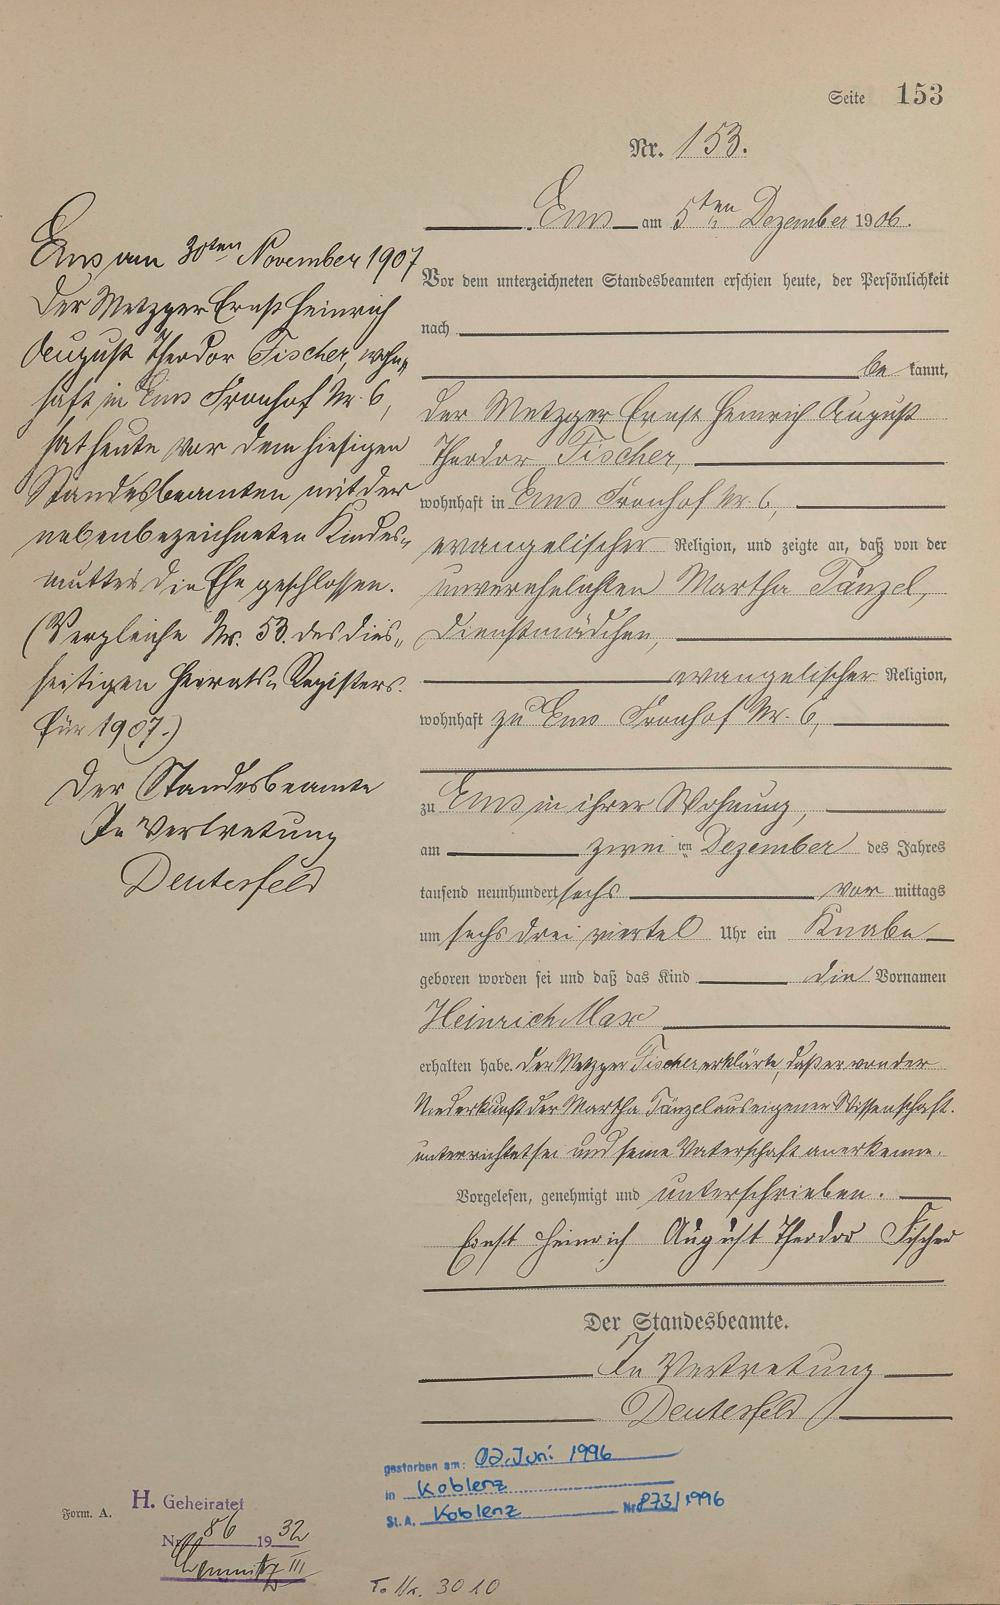 Seite 153
Nr. 153.
Ems am 5ten Dezember 1906.
Vor dem unterzeichneten Standesbeamten erschien heute, der Persönlichkeit
nach
be kannt,
der Metzger Ernst Heinrich August
Theodor Fischer,
wohnhaft in Ems Fronhof Nr. 6,
evangelischer Religion, und zeigte an, daß von der
unverehelichten Martha Tänzel,
Dienstmädchen,
evangelischer Religion,
wohnhaft zu Ems Fronhof Nr. 6,
zu Ems in ihrer Wohnung,
am zwei ten Dezember des Jahres
tausend neunhundert sechs vor mittags
um sechs drei viertel Uhr ein Knabe
geboren worden sei und daß das Kind die Vornamen
Heinrich Max
erhalten habe. Der Metzger Fischer erklärte, daß er von der
Niederkunft der Martha Tänzel aus eigener Wissenschaft
unterrichtet sei und seine Vaterschaft anerkenne.
Vorgelesen, genehmigt und unterschrieben.
Ernst Heinrich August Theodor Fischer
Der Standesbeamte.
In Vertretung
Deutesfeld
Ems am 30ten November 1907
Der Metzger Ernst Heinrich
August Theodor Fischer, wohn„
haft in Ems Fronhof Nr. 6,
hat heute vor dem hiesigen
Standesbeamten mit der
nebenbezeichneten Kindes„
mutter die Ehe geschlossen.
(Vergleiche Nr. 53. des dies„
seitigen Heirats„Registers
für 1907.)
Der Standesbeamte
In Vertretung
Deutesfeld
gestorben am: 02. Juni 1996
in Koblenz
St.A. Koblenz Nr 873/1996
Form. A.
H. Geheiratet
Nr. 86 1932
Chemnitz III
T. Nr. 3010